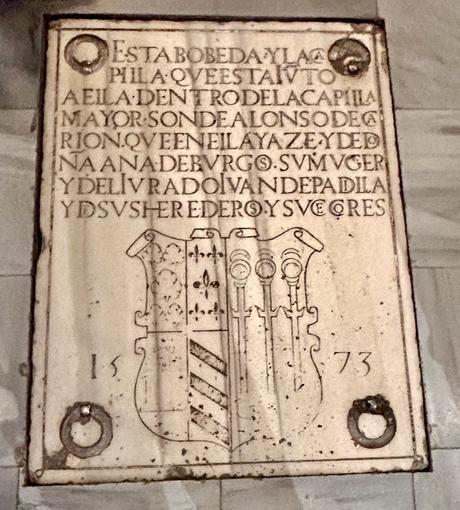 ESTA BOBEDA·Y LA CA
PILLA·QVE ESTA IVTO
A ELLA·DENTRO DE LA CAPILLA
MAYOR·SON DE ALONSO DE CA
RION·QVE EN ELLA YAZE·Y DE DO
ÑA ANA·DE BVRGOS·SV MVGER
Y DEL IVRADO IVAN DE PADILLA
Y D SVS HEREDEROS·Y SVCECORES
15 73